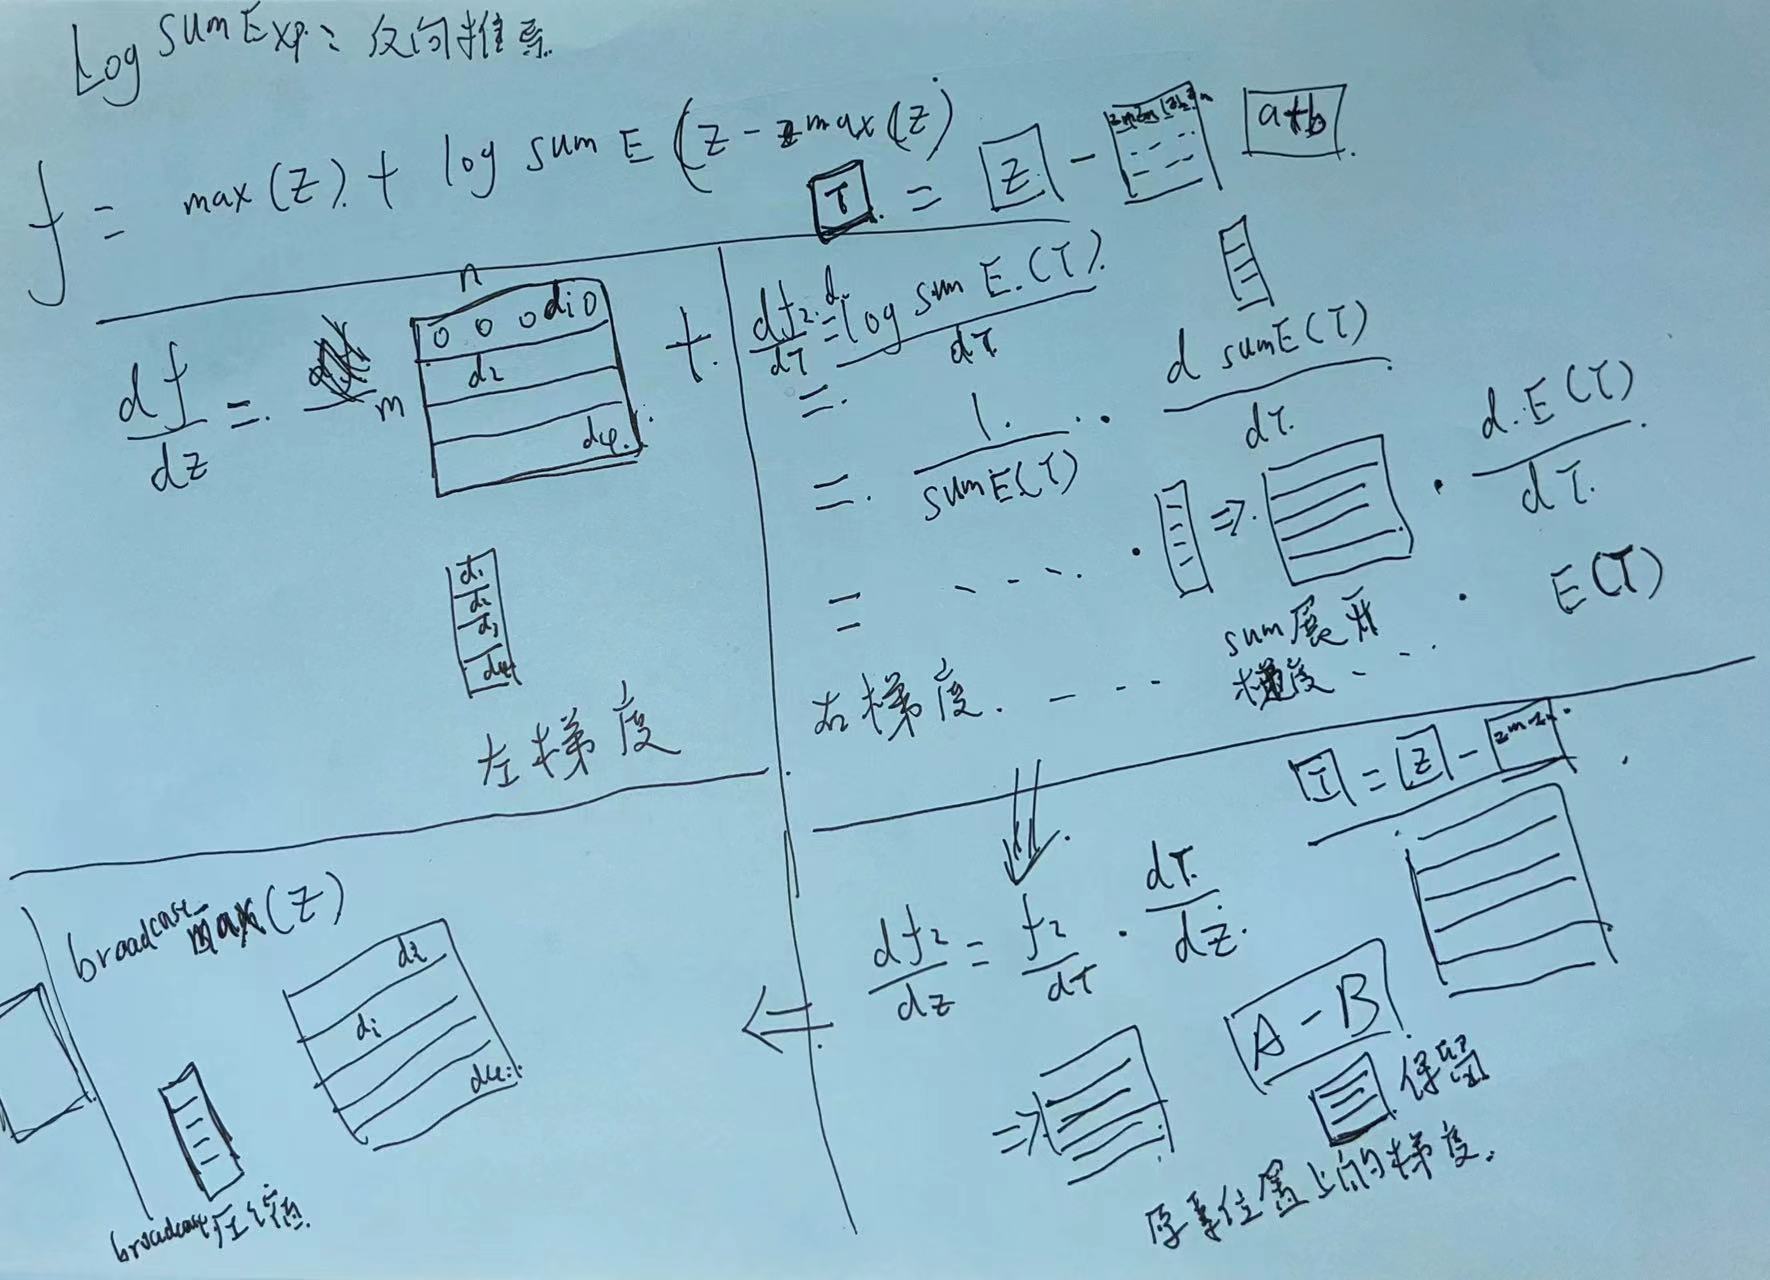 Log sum Exp: 反向推导
f = max(Z) + log sum E (Z - max(Z)
T = Z -
a+b
df/dz =
n
m
0 0 0 d1 0
d2
d4
+
d1
d2
d3
d4
左梯度
df2/dT = d log sum E.(T)/dT
= 1/sumE(T) · d sumE(T)/dT
= · ⇒ · d.E(T)/dT
= · E(T)
sum展开
梯度
右梯度
T = Z -
df2/dz = f2/dT · dT/dz
A - B
保留
原本位置上的梯度.
broadcase max(Z)
d2
d1
d4
broadcase压缩